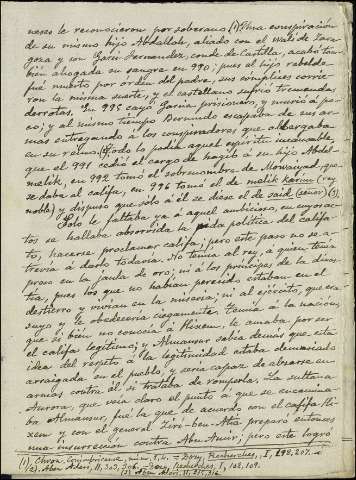 neses le reconocieron por soberano (1). Una conspiración
de su mismo hijo Abdallah, aliado con el walí de Zara-
goza y con Garci-Fernandez, conde de Castilla, acabó tam-
bién ahogada en sangre en 990; pues el hijo rebelde
fué muerto por orden del padre, sus cómplices corrie-
ron la misma suerte, y el castellano sufrió tremendas
derrotas. En 995 cayó García prisionero, y murió á po-
co; y al mismo tiempo Bermudo escapaba de sus ar-
mas entregando á los conspiradores que albergaba
en su reino. Todo lo podía aquel espíritu incansable
que el 991 cedió el cargo de hagib á su hijo Abdel-
melik, en 992 tomó el sobrenombre de Mowaiyad, que
se daba al califa, en 996 tomó el de melik karim (rey
noble) y dispuso que sólo á él se diese el de said (señor) (3).
Solo le faltaba ya á aquel ambicioso, en cuyos ac-
tos se hallaba absorbida la vida política del califa-
to, hacerse proclamar califa; pero este paso no se a-
trevía á darlo todavía. No temía al rey, á quien tenía
preso en la jaula de oro; ni á los príncipes de la dinas-
tía, pues los que no habían perecido estaban en el
destierro y vivían en la miseria; ni al ejército, que era
suyo y le obedecería ciegamente. Temía á la nación,
que si bien no conocía á Hixem, le amaba por ser
el califa legítimo; y Almansur sabía demás que esta
idea del respeto á la legitimidad estaba demasiado
arraigada en el pueblo, y sería capaz de alzarse en
armas contra él si trataba de romperla. La sultana
Aurora, que veía claro el punto á que se encamina-
ba Almansur, fué la que de acuerdo con el califa Hi-
xem y con el general Zirí-ben-Atia preparó entonces
una insurrección contra Aben-Amir; pero este logró
(1). Chron. Conimbricense, núm. I, 4. = Dozy, Recherches, I, 198, 207.
(2). Aben Adari, II, 303, 306. = Dozy, Recherches, I, 102, 109.
(3). Aben Adari, II, 315, 316.